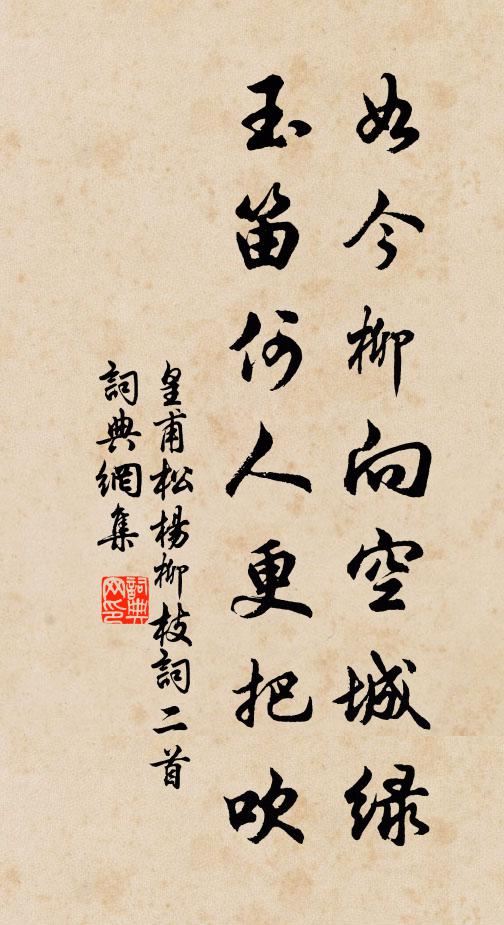 如今柳向空城绿
玉笛何人更把吹
皇甫松楊柳枝詞二首
詞典網集
詞典网印